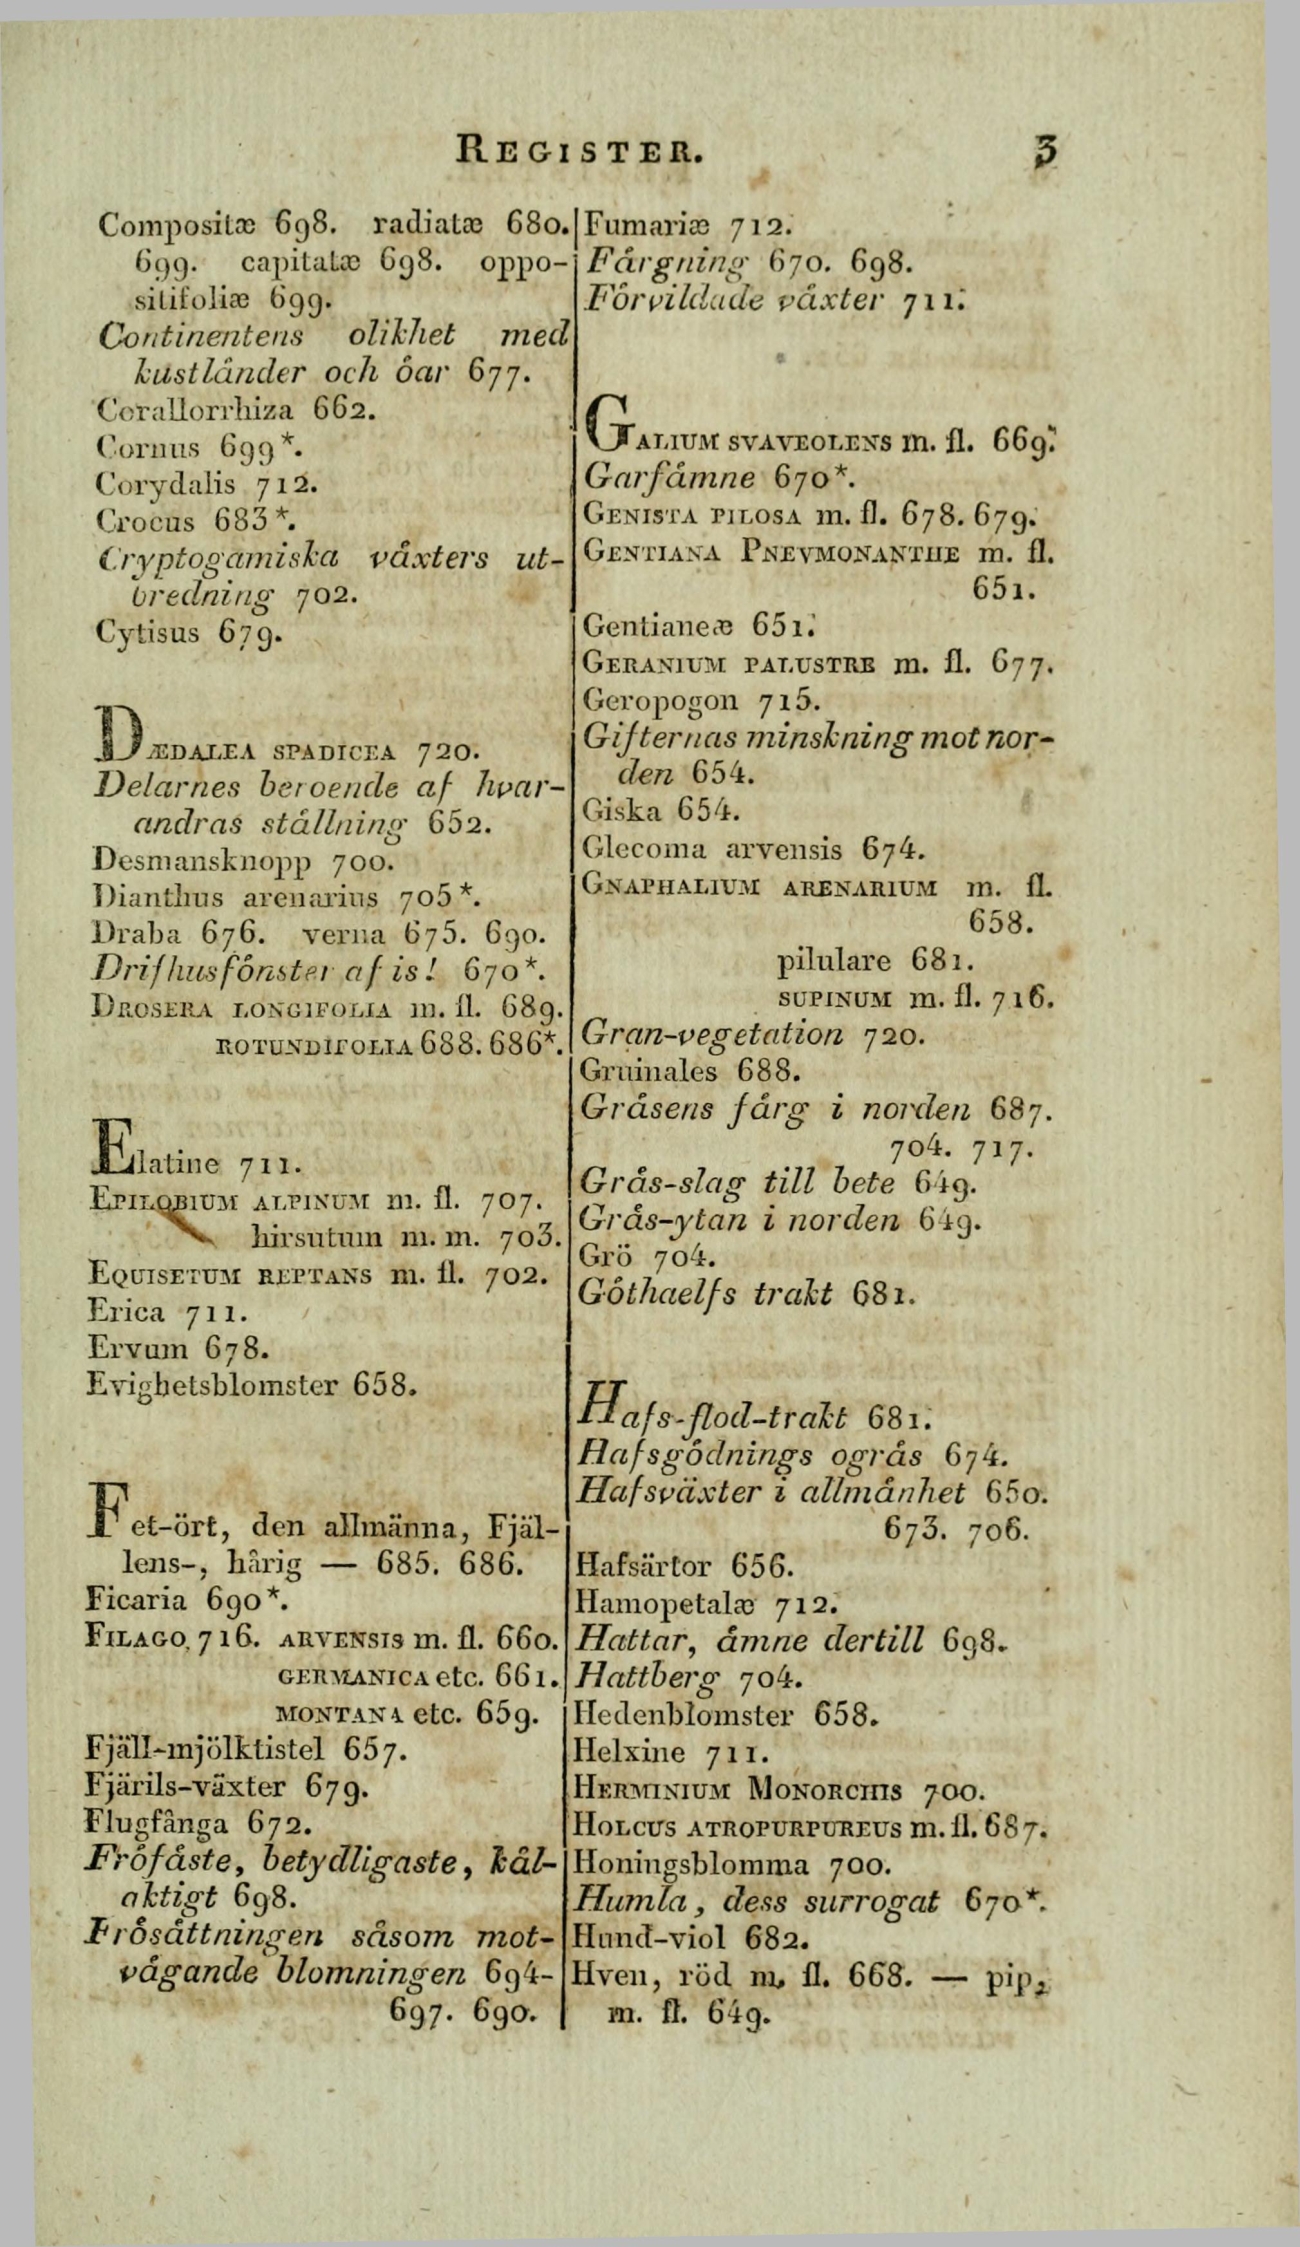 REGISTER. 3
Compositæ 698. radiatæ 680.
699. capitatæ 698. oppo-
sitifoliæ 699.
Continentens olikhet med
kustlånder och öar 677.
Corallorrhiza 662.
Cornus 699*.
Corydalis 712.
Crocus 683*.
Cryptogamiska våxters ut-
bredning 702.
Cytisus 679.
DÆDALEA SPADICEA 720.
Delarnes beroende af hvar-
andras stållning 652.
Desmansknopp 700.
Dianthus arenarius 705*.
Draba 676. verna 675. 690.
Drifhusfönster af is! 670*.
DROSERA LONGIFOLIA m. fl. 689.
ROTUNDIFOLIA 688. 686*.
Elatine 711.
EPILOBIUM ALPINUM m. fl. 707.
hirsutum m. m. 703.
EQUISETUM REPTANS m. fl. 702.
Erica 711.
Ervum 678.
Evighetsblomster 658.
Fet-ört, den allmänna, Fjäl-
lens-, hårig — 685. 686.
Ficaria 690*.
FILAGO. 716. ARVENSIS m. fl. 660.
GERMANICA etc. 661.
MONTANA etc. 659.
Fjäll-mjölktistel 657.
Fjärils-växter 679.
Flugfånga 672.
Fröfåste, betydligaste, kål-
aktigt 698.
Frösåttningen såsom mot-
vågande blomningen 694-
697. 690.
Fumariæ 712.
Fårgning 670. 698.
Förvildade våxter 711.
GALIUM SVAVEOLENS m. fl. 669.
Garfåmne 670*.
GENISTA PILOSA m. fl. 678. 679.
GENTIANA PNEVMONANTHE m. fl.
651.
Gentianeæ 651.
GERANIUM PALUSTRE m. fl. 677.
Geropogon 715.
Gifternas minskning mot nor-
den 654.
Giska 654.
Glecoma arvensis 674.
GNAPHALIUM ARENARIUM m. fl.
658.
pilulare 681.
SUPINUM m. fl. 716.
Gran-vegetation 720.
Gruinales 688.
Gråsens fårg i norden 687.
704. 717.
Grås-slag till bete 649.
Grås-ytan i norden 649.
Grö 704.
Göthaelfs trakt 681.
Hafs-flod-trakt 681.
Hafsgödnings ogrås 674.
Hafsväxter i allmånhet 650.
673. 706.
Hafsärtor 656.
Hamopetalæ 712.
Hattar, åmne dertill 698.
Hattberg 704.
Hedenblomster 658.
Helxine 711.
HERMINIUM MONORCHIS 700.
HOLCUS ATROPURPUREUS m. fl. 687.
Honingsblomma 700.
Humla, dess surrogat 670*.
Hund-viol 682.
Hven, röd m. fl. 668. — pip,
m. fl. 649.